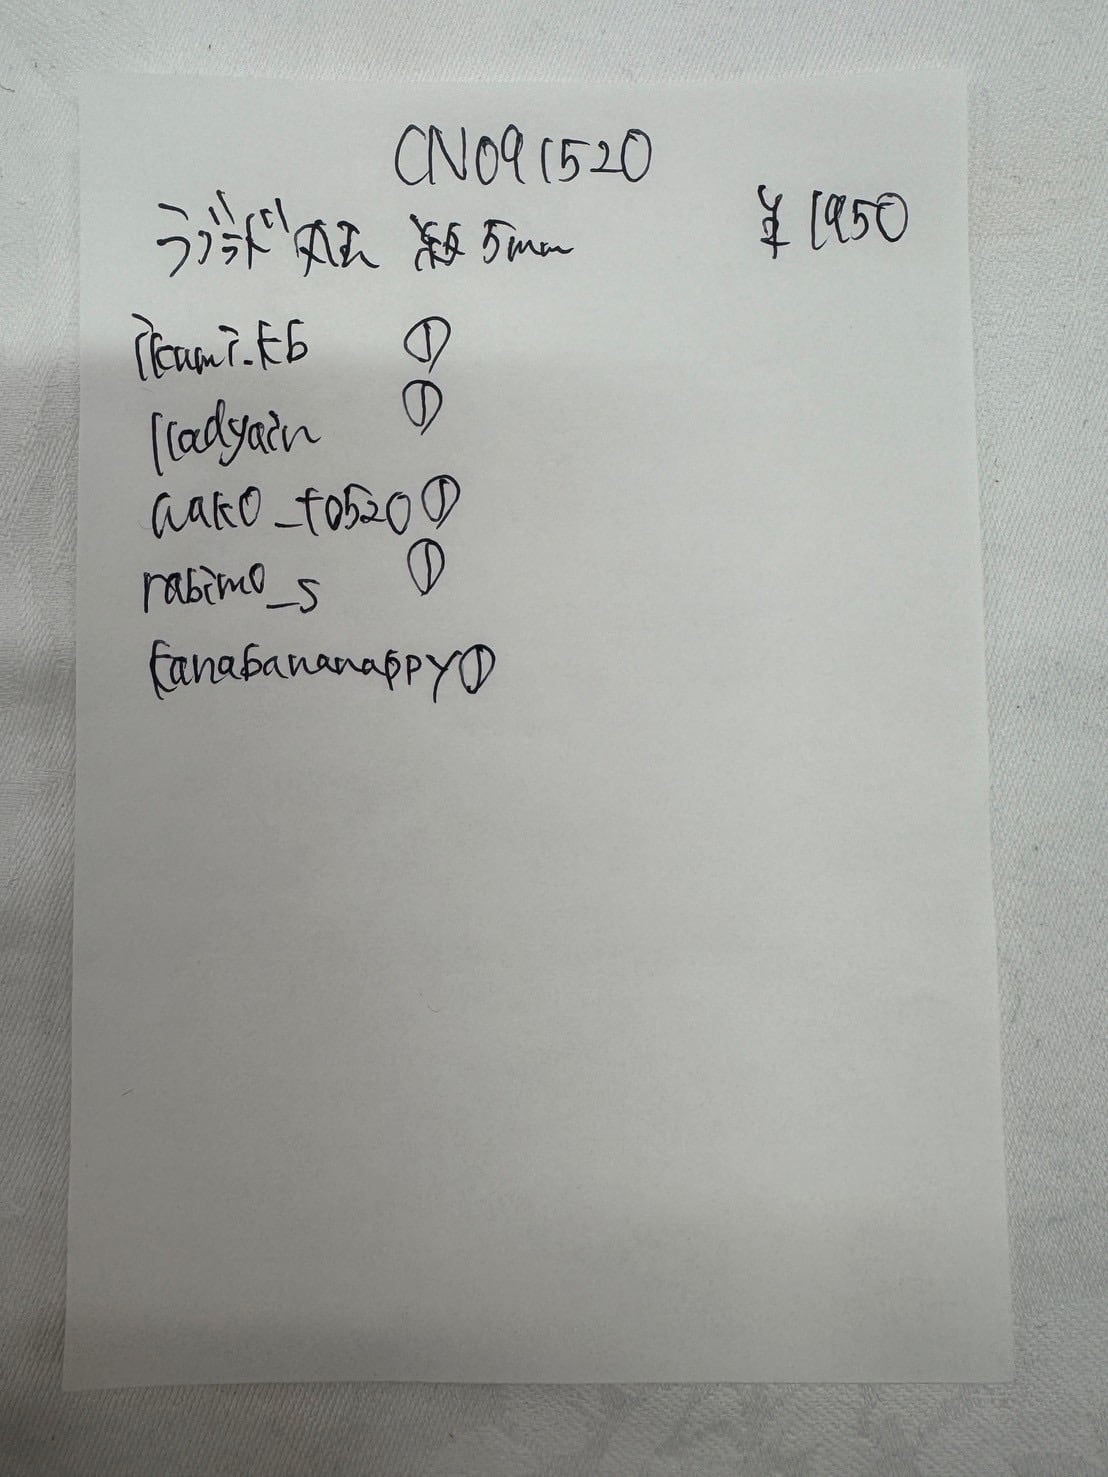 CN091520
ラブラド 丸玉 約5mm ¥1950
ikumi.kb ①
lladyain ①
wako_t0520 ①
rabimo_s ①
kanabananappy ①